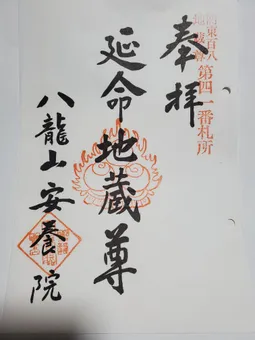 奉拝
関東百八
地蔵尊
第四一番札所
延命地蔵尊
八龍山安養院